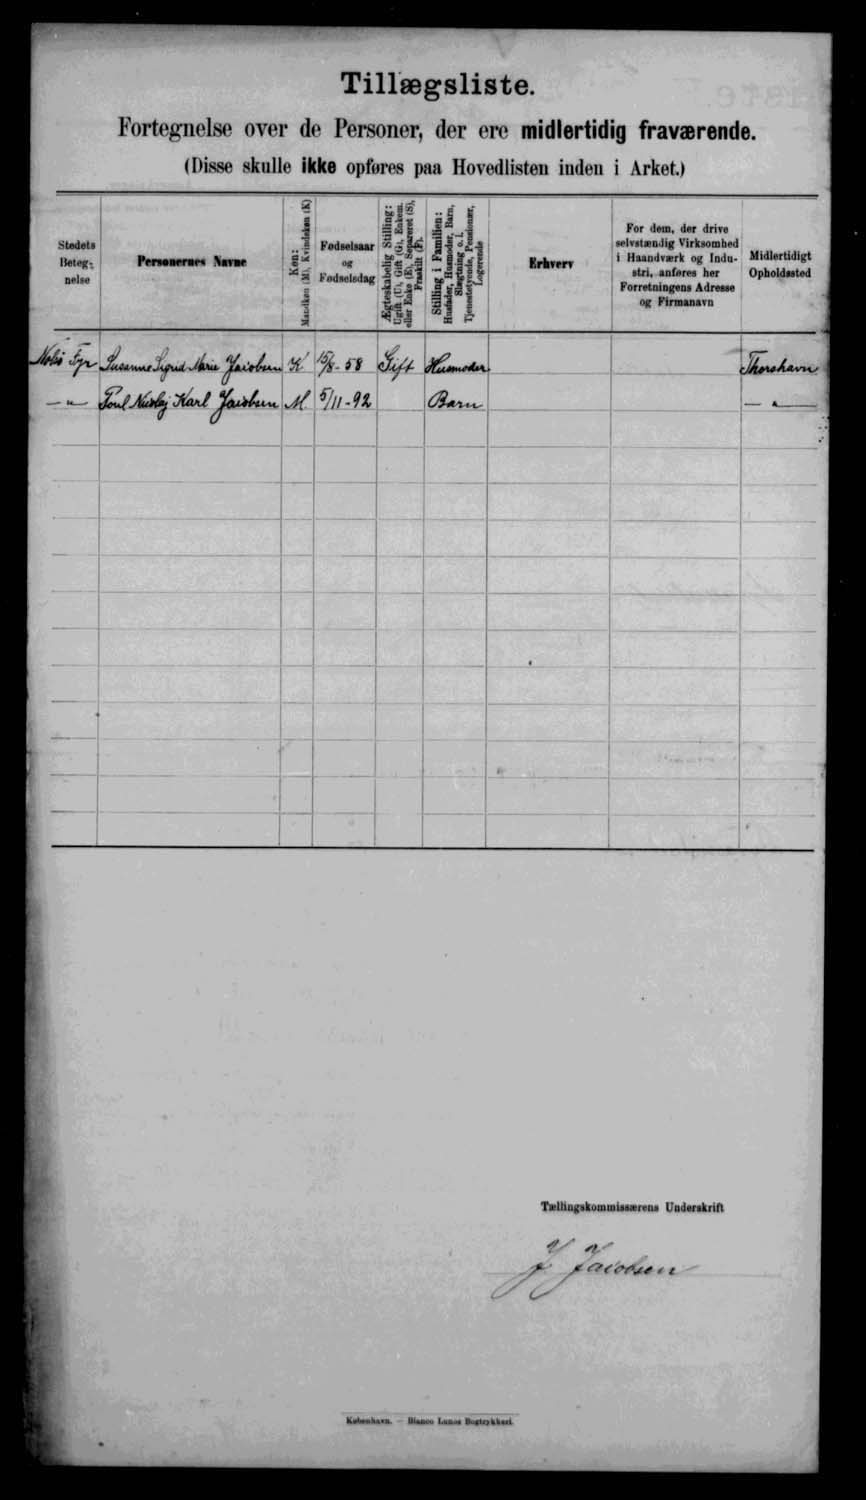 Tillægsliste.
Fortegnelse over de Personer, der ere midlertidig fraværende.
(Disse skulle ikke opføres paa Hovedlisten inden i Arket.)
Stedets Betegnelse
Personernes Navne
Køn: Mandkøn (M), Kvindekøn (K)
Fødselsaar og Fødselsdag
Ægteskabelig Stilling: Ugift (U), Gift (G), Enkem. eller Enke (E), Separeret (S), Fraskilt (F).
Stilling i Familien: Husfader, Husmoder, Barn, Slægtning o. l. Tjenestetyende, Pensionær, Logerende
Erhverv
For dem, der drive selvstændig Virksomhed i Haandværk og Industri, anføres her Forretningens Adresse og Firmanavn
Midlertidigt Opholdssted
Nolsø Fyr Susanne Sigrid Marie Jacobsen K 15/8-58 Gift Husmoder Thorshavn
—"— Poul Nicolaj Karl Jacobsen M 5/11-92 Barn —"—
Tællingskommissærens Underskrift
J Jacobsen
København. — Bianco Lunos Bogtrykkeri.